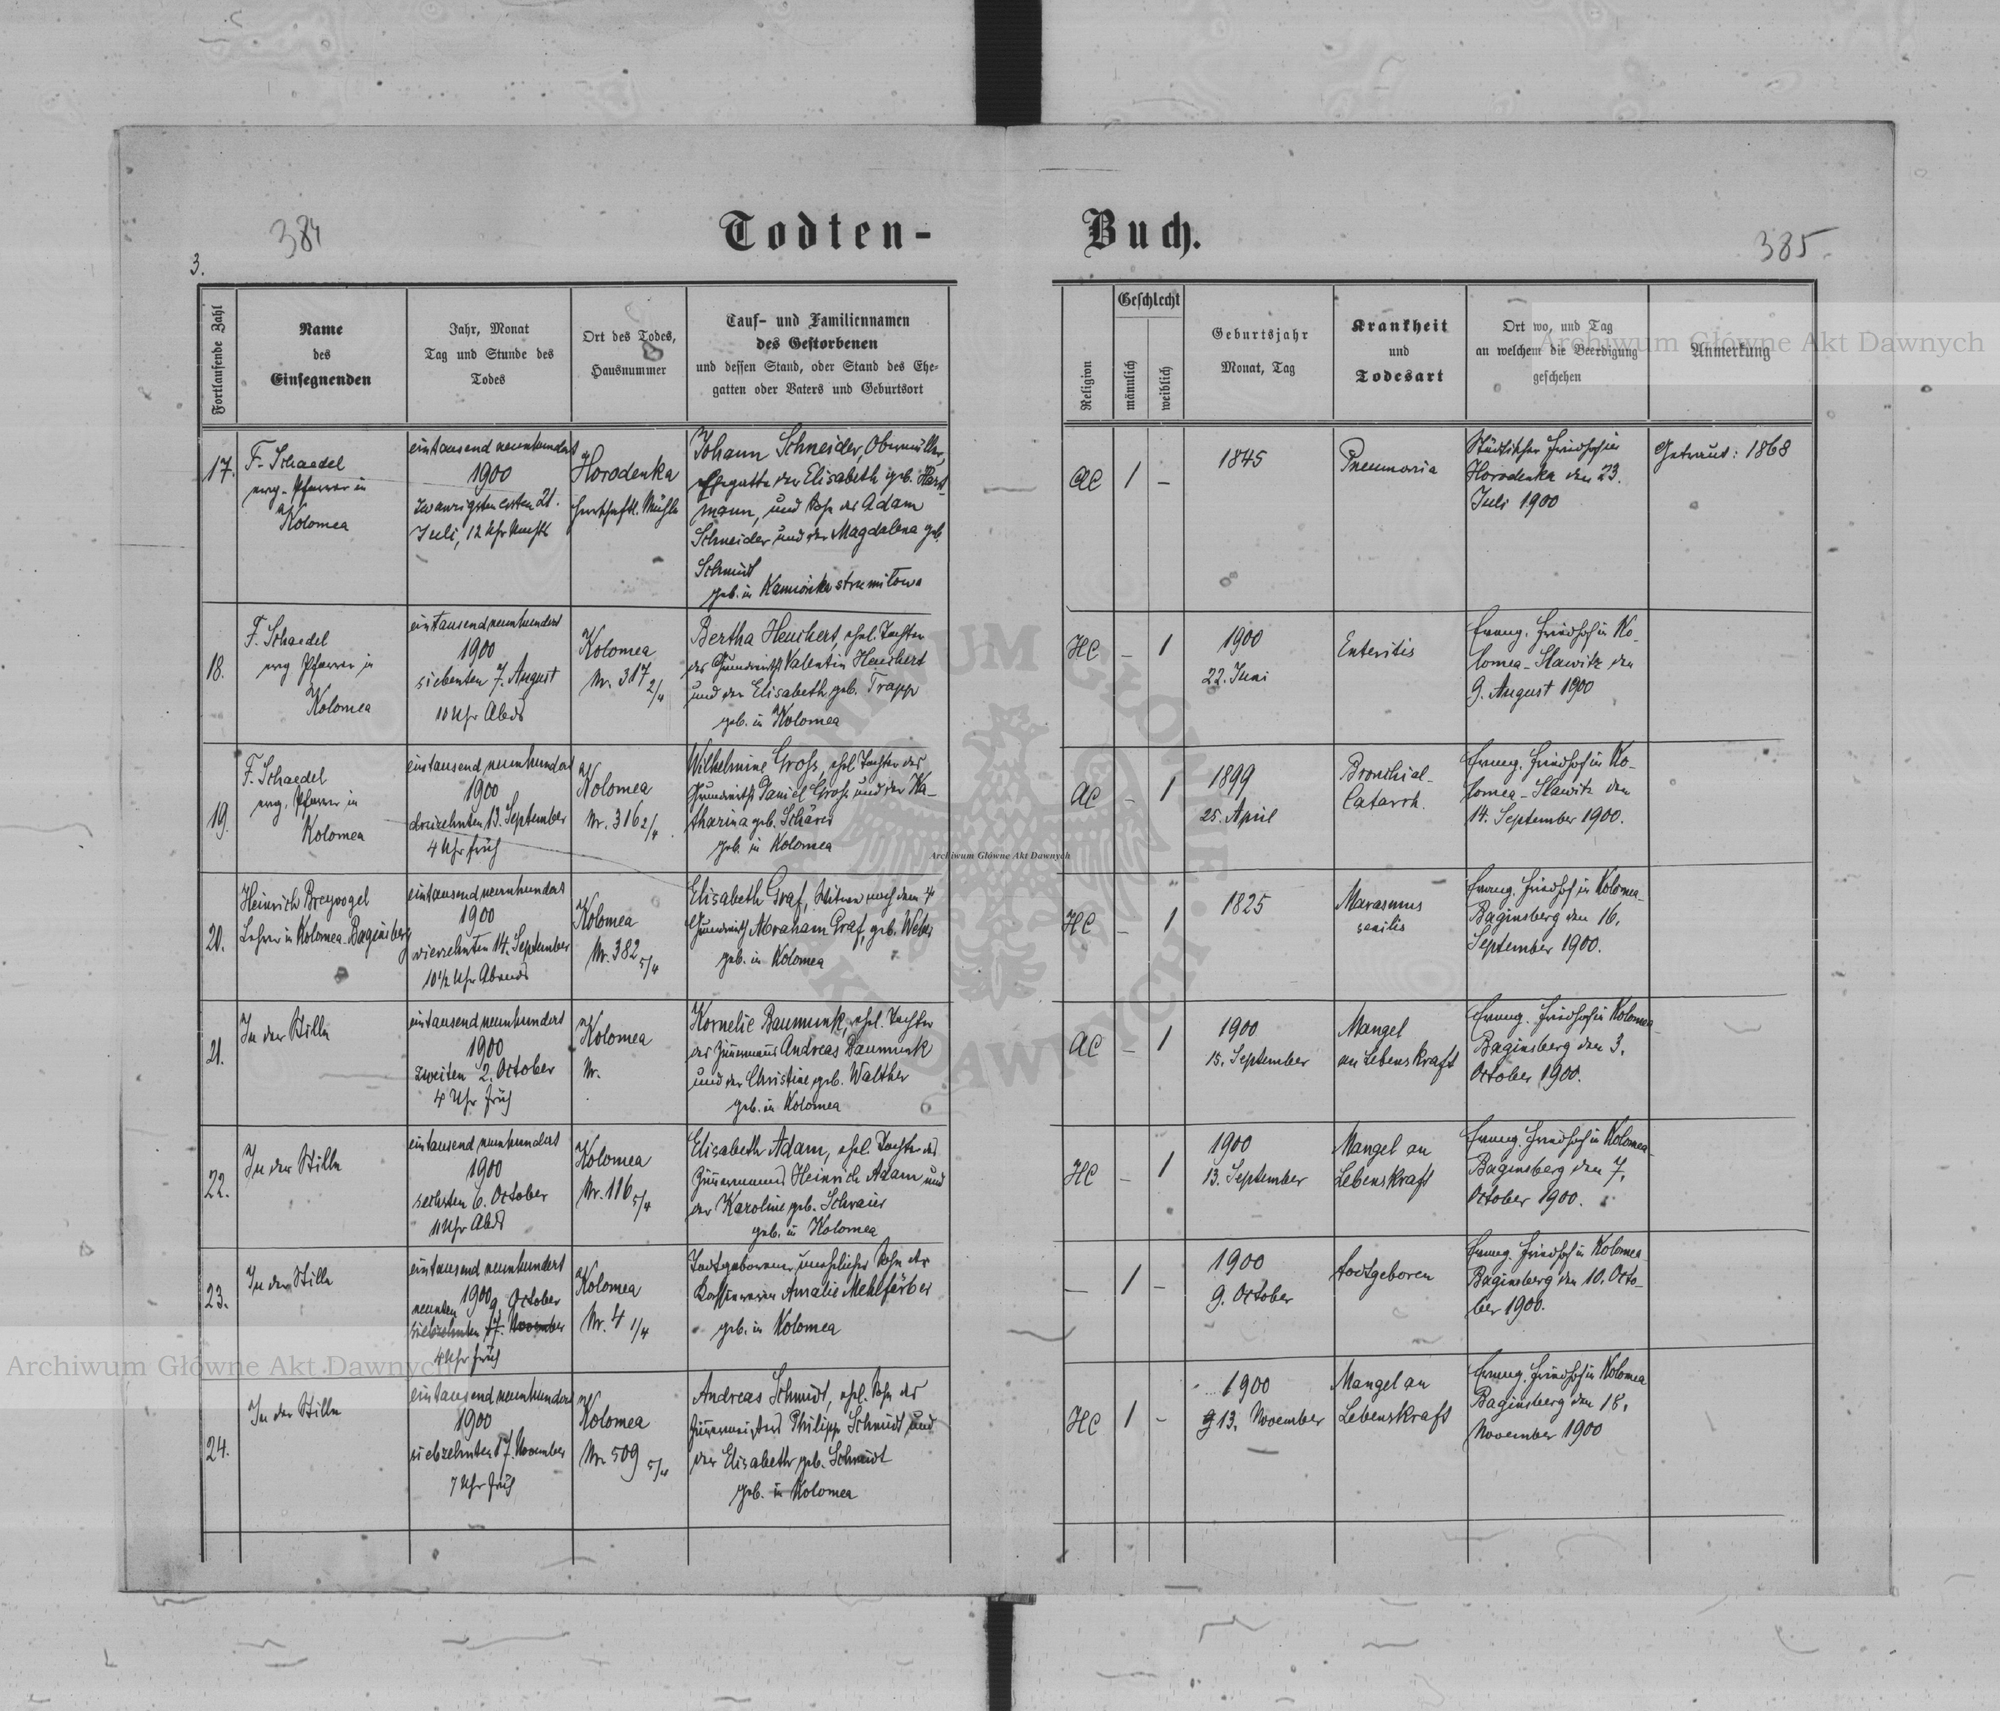 384
Todten-
Buch.
385.
3.
Fortlaufende Zahl
Name
des
Einsegnenden
Jahr, Monat
Tag und Stunde des
Todes
Ort des Todes,
Hausnummer
Tauf- und Familiennamen
des Gestorbenen
und dessen Stand, oder Stand des Ehe-
gatten oder Vaters und Geburtsort
Religion
Geschlecht
männlich
weiblich
Geburtsjahr
Monat, Tag
Krankheit
und
Todesart
Ort wo, und Tag
an welchem die Beerdigung
geschehen
Anmerkung
Archiwum Główne Akt Dawnych
17.
F. Schaedel
evg. Pfarrer in
Kolomea
eintausend neunhundert
1900
zwanzigsten ersten 21.
Juli, 12 Uhr Nachts
Horodenka
herrschaftl. Mühle
Johann Schneider, Obermüller,
Ehegatte der Elisabeth geb. Hart-
mann, und Sohn des Adam
Schneider und der Magdalena geb.
Schmidt
geb. in Kamionka strumiłowa
AC
1
-
1845
Pneumonia
Städtischer Friedhof in
Horodenka den 23.
Juli 1900
Getraut: 1868
18.
F. Schaedel
evg Pfarrer in
Kolomea
eintausend neunhundert
1900
siebenten 7. August
10 Uhr Abds
Kolomea
Nr. 317 2/4
Bertha Heuchert, ehel. Tochter
des Grundwirth Valentin Heuchert
und der Elisabeth geb. Trapp
geb. in Kolomea
HC
-
1
1900
22. Juni
Enteritis
Evang. Friedhof in Ko-
lomea-Slawitz den
9. August 1900
19.
F. Schaedel
evg. Pfarrer in
Kolomea
eintausend neunhundert
1900
dreizehnten 13. September
4 Uhr früh
Kolomea
Nr. 316 2/4
Wilhelmine Gross, ehel. Tochter des
Grundwirth Daniel Gross und der Ka-
tharina geb. Schärer
geb. in Kolomea
AC
-
1
1899
25. April
Bronchial-
Catarrh.
Evang. Friedhof in Ko-
lomea-Slawitz den
14. September 1900.
20.
Heinrich Breyvogel
Lehrer in Kolomea-Baginsberg
eintausend neunhundert
1900
vierzehnten 14. September
10 1/2 Uhr Abends
Kolomea
Nr. 382 5/4
Elisabeth Graf, Witwe nach dem †
Grundwirth Abraham Graf, geb. Weber
geb. in Kolomea
HC
-
1
1825
Marasmus
senilis
Evang. Friedhof in Kolomea-
Baginsberg den 16.
September 1900.
21.
In der Stille
eintausend neunhundert
1900
zweiten 2. October
4 Uhr früh
Kolomea
Nr.
Kornelie Baumunk, ehel. Tochter
des Zimmermanns Andreas Baumunk
und der Christine geb. Walther
geb. in Kolomea
AC
-
1
1900
15. September
Mangel
an Lebenskraft
Evang. Friedhof in Kolomea-
Baginsberg den 3.
October 1900.
22.
In der Stille
eintausend neunhundert
1900
sechsten 6. October
11 Uhr Abds
Kolomea
Nr. 116 5/4
Elisabeth Adam, ehel. Tochter des
Zimmermanns Heinrich Adam und
der Karoline geb.
geb. in Kolomea
HC
-
1
1900
13. September
Mangel an
Lebenskraft
Evang. Friedhof in Kolomea-
Baginsberg den 7.
October 1900.
23.
In der Stille
eintausend neunhundert
1900
neunten 9. October
siebzehnten 17. November
4 Uhr früh
Kolomea
Nr. 4 1/4
Todtgeborener unehelicher Sohn der
Amalie Mehlfärber
geb. in Kolomea
-
1
-
1900
9. October
todtgeboren
Evang. Friedhof in Kolomea
Baginsberg den 10. Octo-
ber 1900.
24.
In der Stille
eintausend neunhundert
1900
siebzehnten 17. November
7 Uhr früh
Kolomea
Nr. 509 5/4
Andreas Schmidt, ehel. Sohn des
Philipp Schmidt und
der Elisabeth geb. Schmidt
geb. in Kolomea
HC
1
-
1900
13. November
Mangel an
Lebenskraft
Evang. Friedhof in Kolomea
Baginsberg den 18.
November 1900
Archiwum Główne Akt Dawnych
Archiwum Główne Akt Dawnych